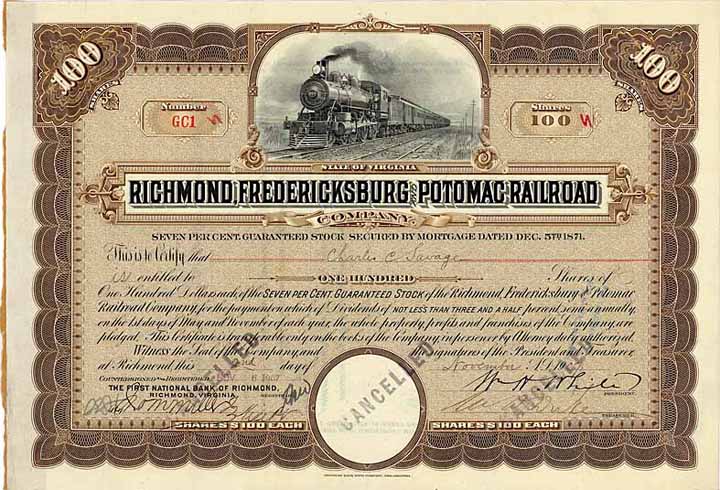 100
100
Number
GC1
Shares
100
STATE OF VIRGINIA
RICHMOND, FREDERICKSBURG AND POTOMAC RAILROAD
COMPANY
SEVEN PER CENT. GUARANTEED STOCK SECURED BY MORTGAGE DATED DEC. 5TH 1871.
This is to Certify that Charles C. Savage
is entitled to ONE HUNDRED Shares of
One Hundred Dollars each of the SEVEN PER CENT. GUARANTEED STOCK of the Richmond, Fredericksburg & Potomac
Railroad Company, for the payment on which of Dividends of NOT LESS THAN THREE AND A HALF per cent. semi-annually,
on the 1st days of May and November of each year, the whole property, profits and franchises of the Company, are
pledged. This Certificate is transferable only on the books of the Company, in person or by Attorney duly authorized.
Witness the Seal of the Company, and signatures of the President and Treasurer
at Richmond, this day of November
COUNTERSIGNED AND REGISTERED 6 1907
THE FIRST NATIONAL BANK OF RICHMOND,
RICHMOND, VIRGINIA.
PRESIDENT.
TREASURER.
CANCELLED
CANCELLED
CANCELLED
SHARES $100 EACH
SHARES $100 EACH